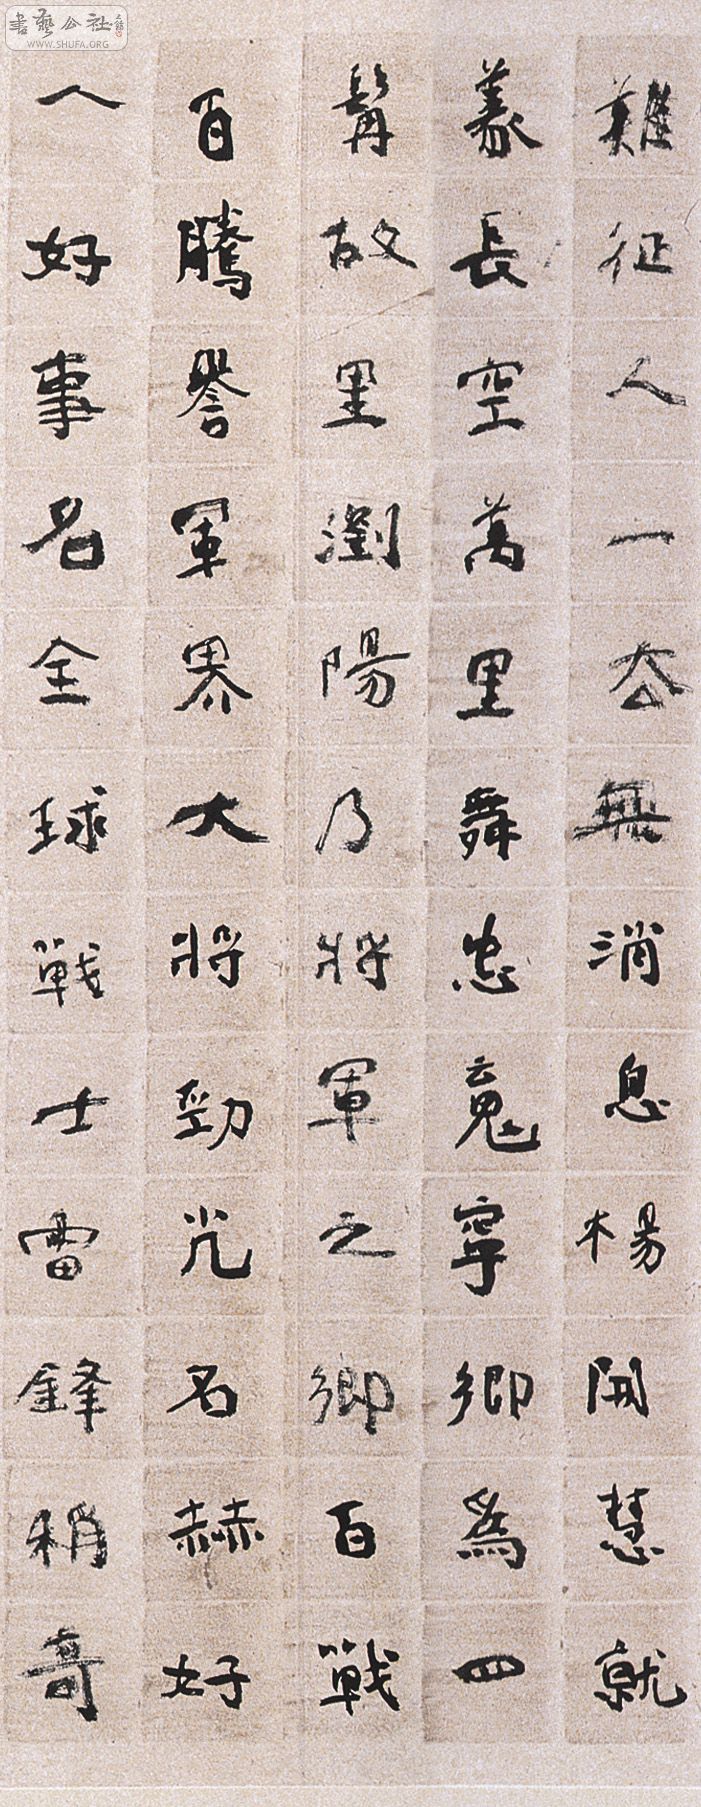 書藝公社
WWW.SHUFA.ORG
難征人一去無消息楊開慧就
義長空萬里舞忠魂寧鄉為四
髯故里瀏陽乃將軍之鄉百戰
百騰譽軍界大將勁光名赫好
人好事名全球戰士雷鋒稱奇